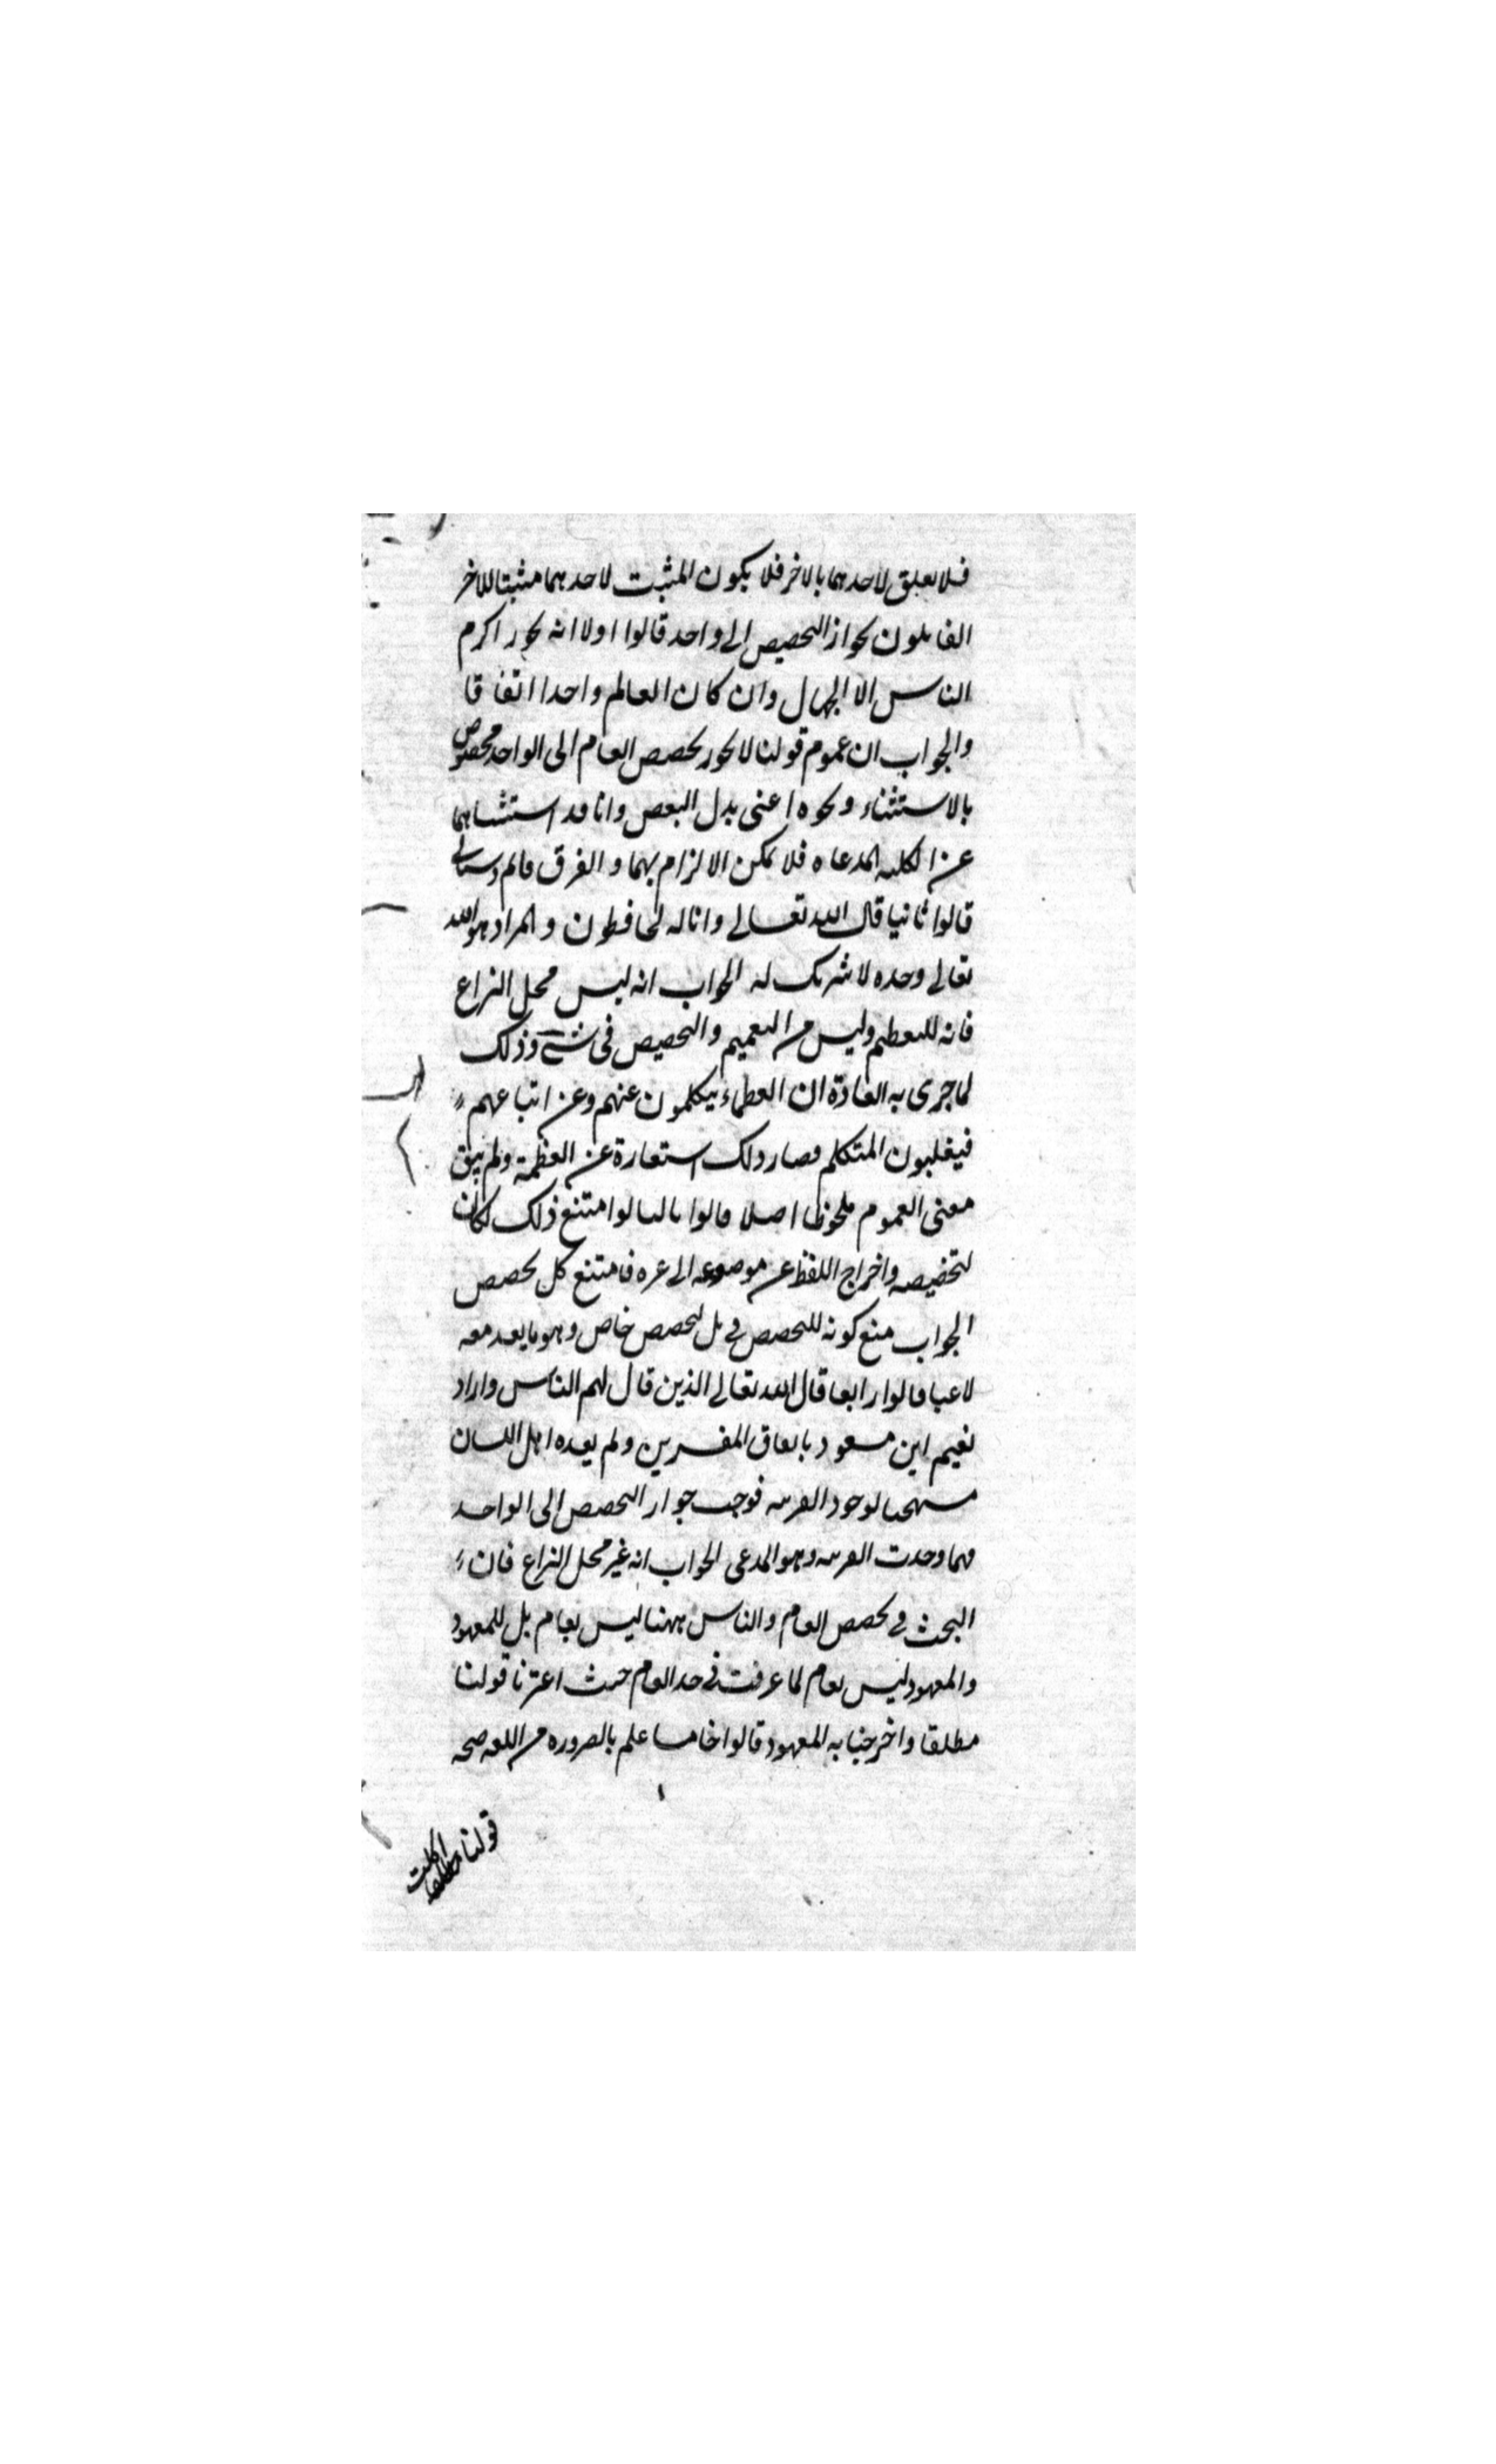 فلا تعلق لاحدهما بالاخر فلا يكون المثبت لاحدهما مثبتا للاخر
القائلون بجواز التخصيص الى واحد قالوا اولا انه يجوز اكرم
الناس الا الجهال وان كان العالم واحدا اتفاقا
والجواب ان عموم قولنا لا يجوز تخصيص العام الى الواحد مخصوص
بالاستثناء ونحوه اعنى بدل البعض وانا قد استثنيناهما
عن الكليه المدعاه فلا يمكن الالزام بهما والفرق قائم
قالوا ثانيا قال الله تعالى وانا له لحافظون والمراد هو الله
تعالى وحده لا شريك له الجواب انه ليس محل النزاع
فانه للتعظيم وليس من التعميم والتخصيص فى شئ وذلك
لما جرى به العادة ان العظماء يتكلمون عنهم وعن اتباعهم
فيغلبون المتكلم فصار ذلك استعارة عن العظمة ولم يبق
معنى العموم ملحوظا اصلا قالوا ثالثا لو امتنع ذلك لكان
لتخصيصه واخراج اللفظ عن موضوعه الى غيره فامتنع كل تخصيص
الجواب منع كونه للتخصيص بل لتخصيص خاص وهو ما يعد معه
لاغيا قالوا رابعا قال الله تعالى الذين قال لهم الناس واراد
نعيم ابن مسعود باتفاق المفسرين ولم يعده اهل اللسان
مستهجنا لوجود القرينه فوجب جواز التخصيص الى الواحد
مهما وجدت القرينه وهو المدعى الجواب انه غير محل النزاع فان
البحث فى تخصيص العام والناس ههنا ليس بعام بل للمعهود
والمعهود ليس بعام لما عرفت فى حد العام حيث اعتبرنا قولنا
مطلقا واخرجنا به المعهود قالوا خامسا علم بالضروره من اللغه صحه
قولنا اكلت